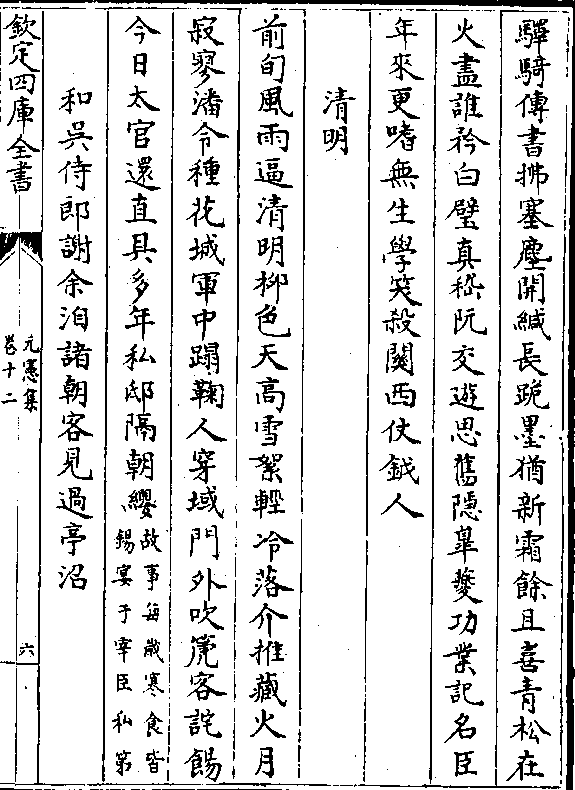 驛騎傳書拂塞塵開緘長跪墨猶新霜餘且喜青松在
火盡誰矜白璧真嵇阮交遊思舊隱臯夔功業記名臣
年來更嗜無生學笑殺關西仗鉞人
清明
前旬風雨逼清明栁色天高雪絮輕冷落介推藏火月
寂寥潘令種花城軍中蹋鞠人穿域門外吹箎客詫餳
今日太官還直具多年私邸隔朝纓故事每歳寒食皆
錫宴于宰臣私第
和吳侍郎謝余洎諸朝客見過亭沼
欽定四庫全書
元憲集
卷十二
六